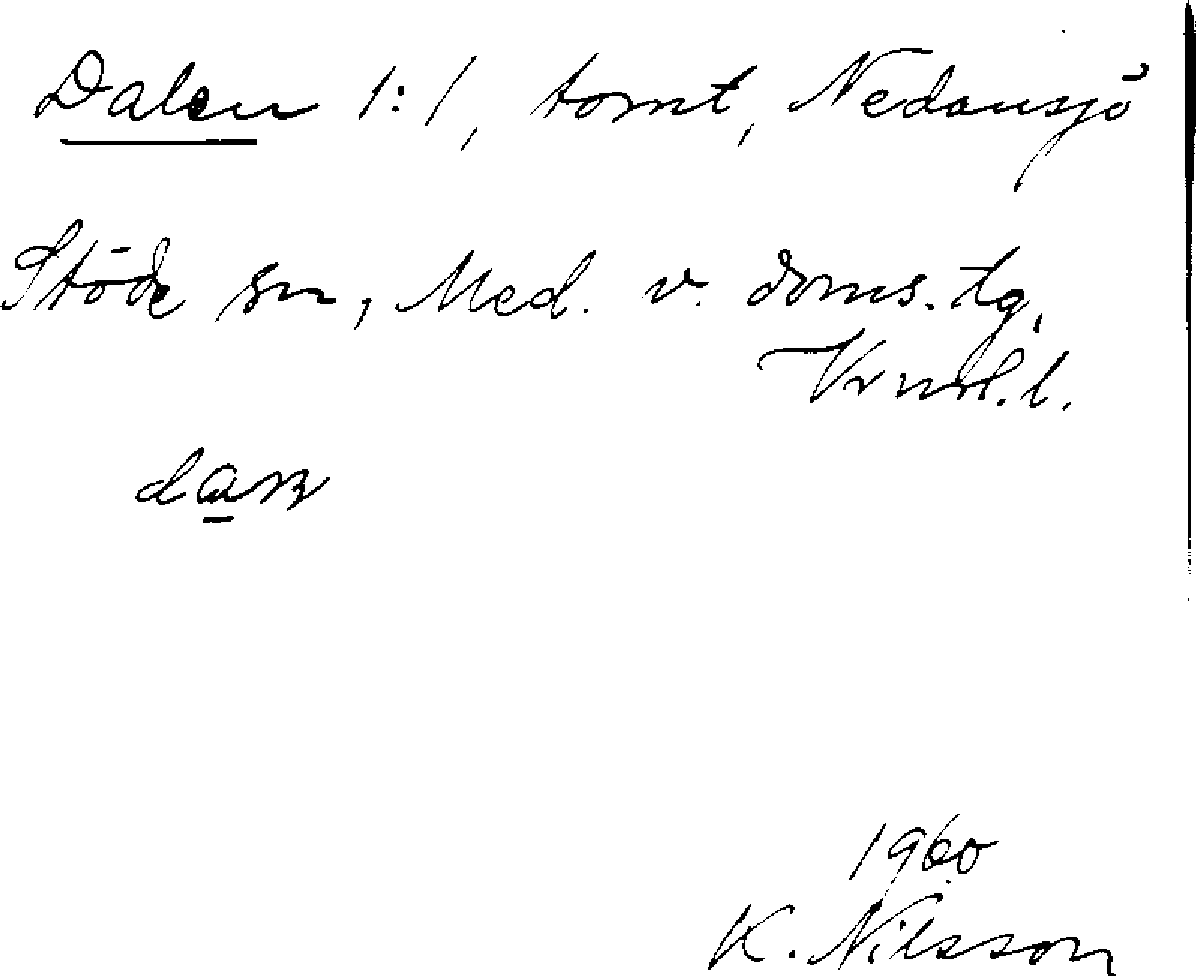 Dalen 1:1, tomt, Nedansjö
Stöde sn, Med. v. doms. tg,
Vrnl. l.
1960
K. Nilsson